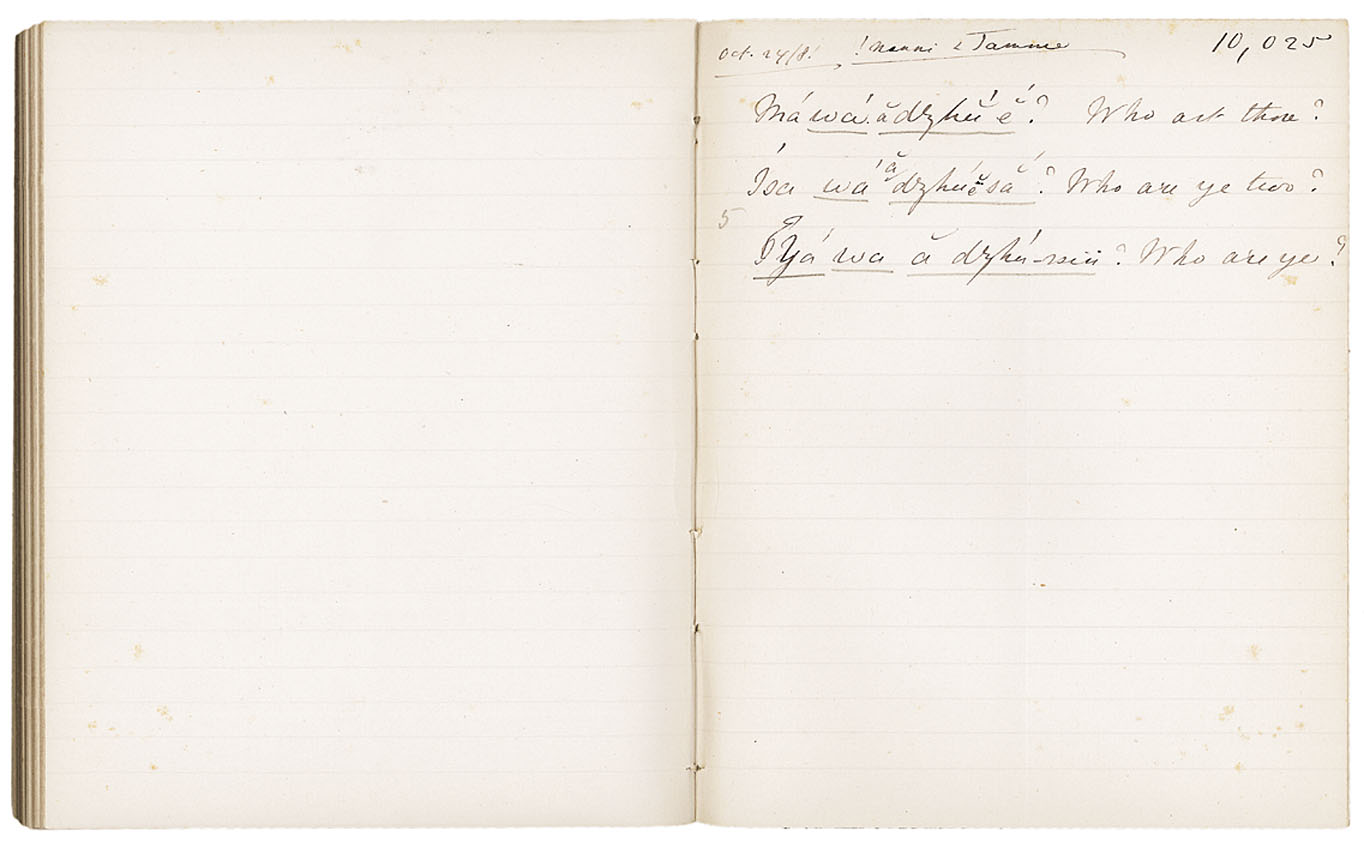 Oct. 24/81. !Nanni & Tamme 10,025
Má wá ă dzhú ĕ? Who art thou?
Ísa wá ă dzhú ĕ să? Who are ye two?
5
Yá wa ă dzhú-ssin? Who are ye?